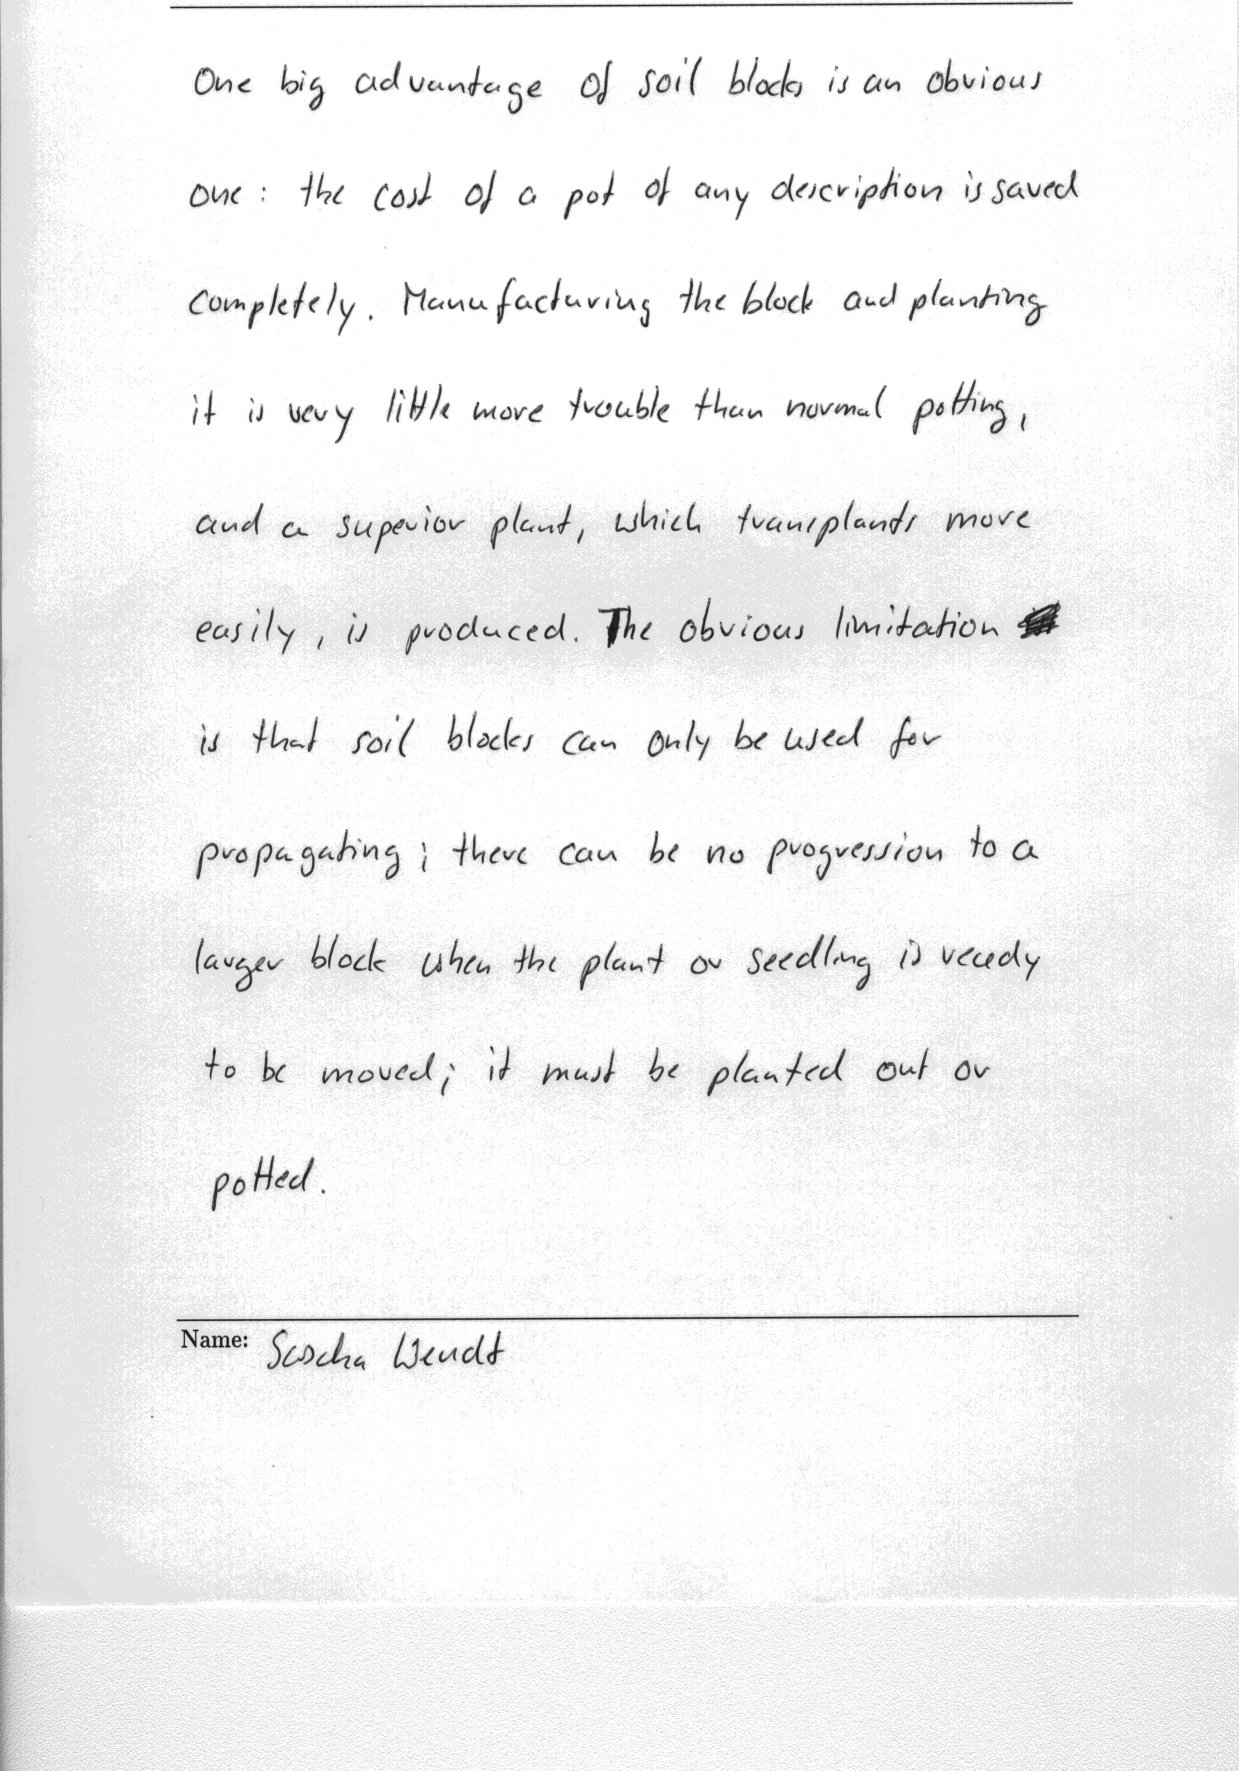 One big advantage of soil blocks is an obvious
one: the cost of a pot of any description is saved
completely. Manufacturing the block and planting
it is very little more trouble than normal potting,
and a superior plant, which transplants more
easily, is produced. The obvious limitation
is that soil blocks can only be used for
propagating; there can be no progression to a
larger block when the plant or seedling is ready
to be moved; it must be planted out or
potted.
Name: Sascha Wendt